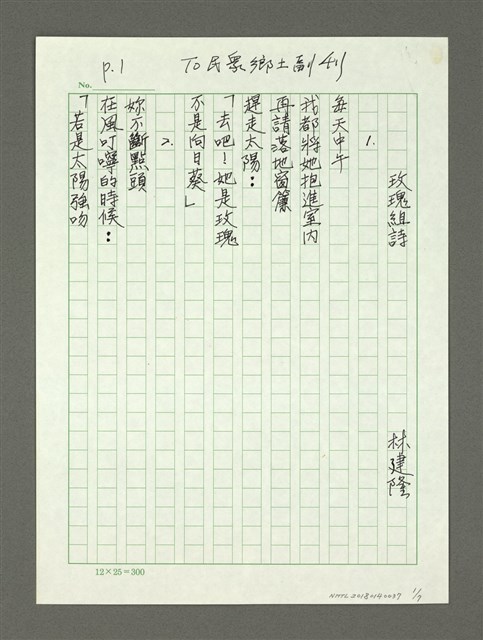 p.1 To民眾鄉土副刊
No.
玫瑰組詩 林建隆
1.
每天中午
我都將她抱進室內
再請落地窗簾
趕走太陽：
「去吧！她是玫瑰
不是向日葵」
2.
妳不斷點頭
在風叮嚀的時候：
「若是太陽強吻
12×25=300
NMTL20180140037 1/7